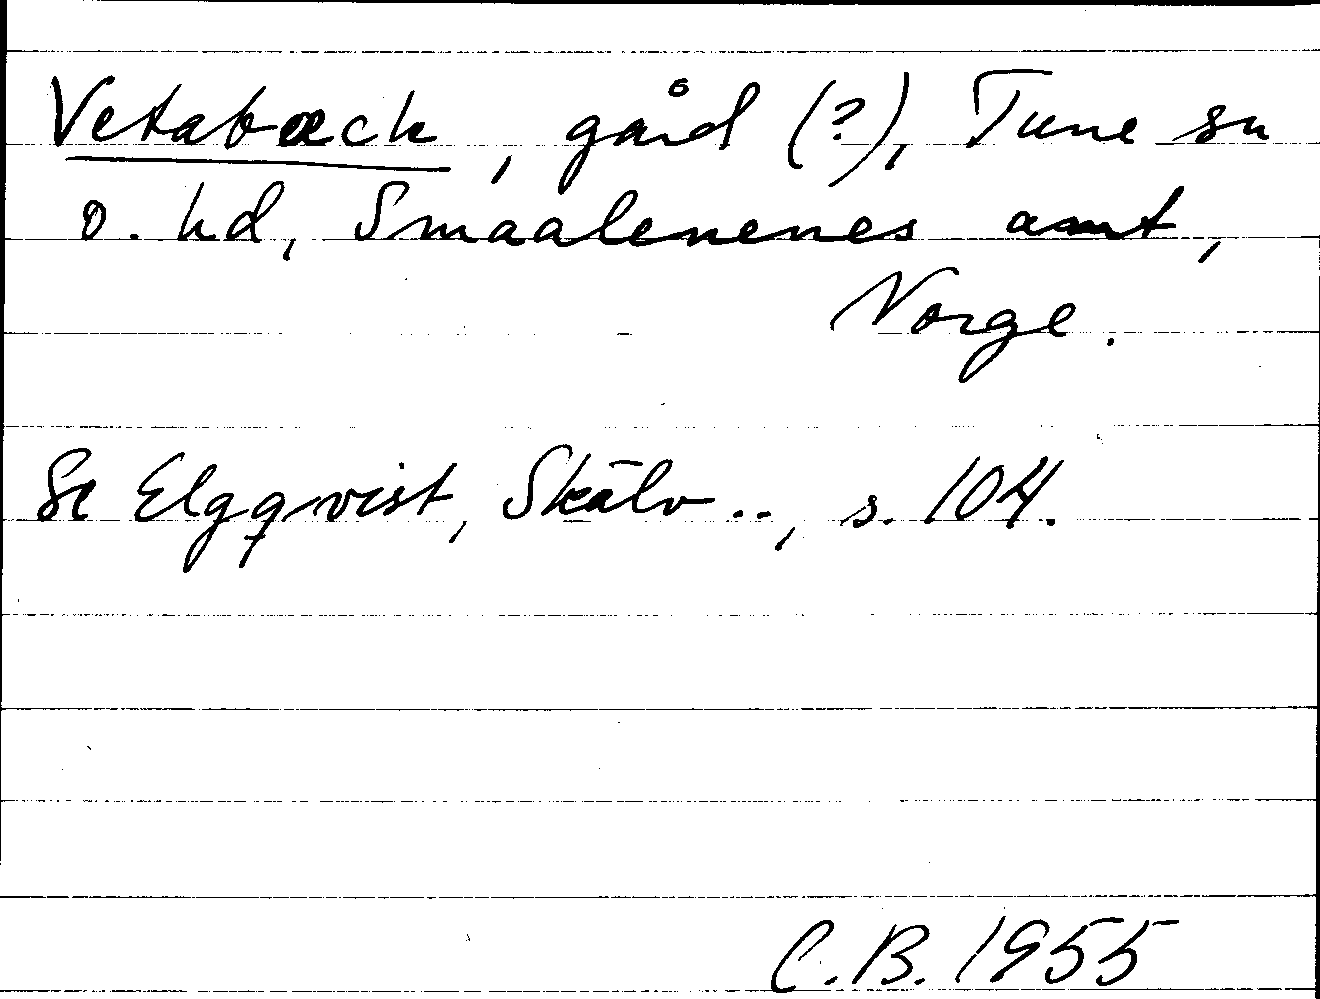 Vetabæck, gård (?), Tune sn
o. hd, Smaalenenes amt,
Norge.
Se Elgqvist, Skälv.., s. 104.
C.B. 1955